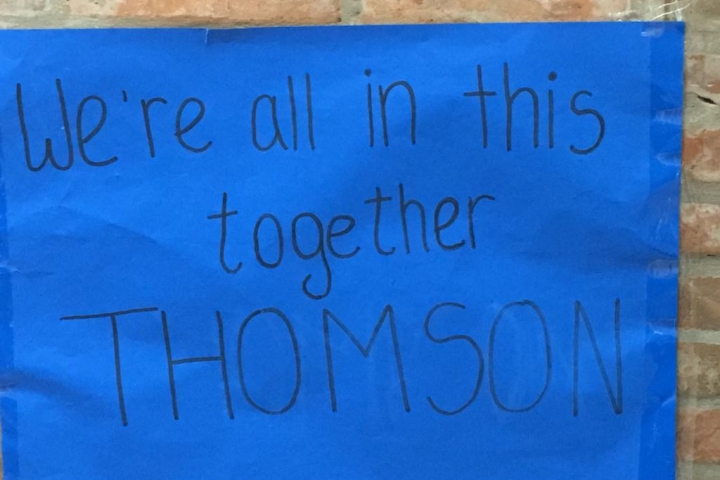 We're all in this
together
THOMSON